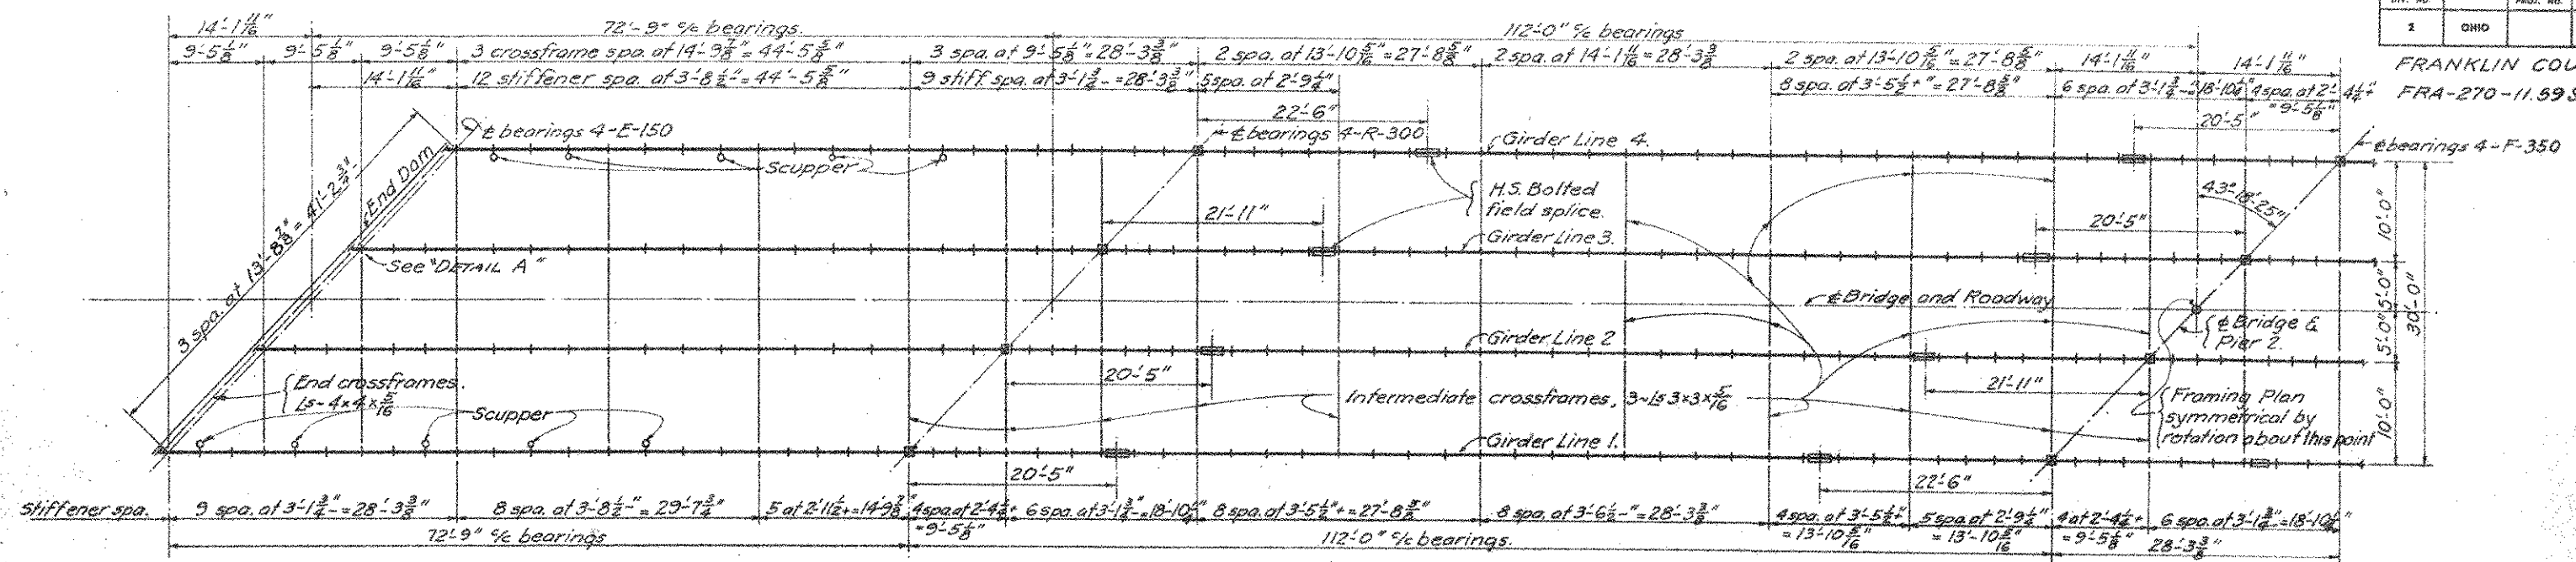 2 OHIO
FRANKLIN COU
FRA-270-11.59S
14'-1 11/16" 72'-9" c/c bearings. 112'-0" c/c bearings
9'-5 1/8" 9'-5 1/8" 9'-5 1/8" 3 crossframe spa. at 14'-9 7/8" = 44'-5 5/8" 3 spa. at 9'-5 1/8" = 28'-3 3/8" 2 spa. at 13'-10 5/16" = 27'-8 5/8" 2 spa. at 14'-1 11/16" = 28'-3 3/8" 2 spa. at 13'-10 5/16" = 27'-8 5/8" 14'-1 11/16" 14'-1 11/16"
14'-1 11/16" 12 stiffener spa. at 3'-8 1/2"- = 44'-5 5/8" 9 stiff spa. at 3'-1 3/4"- = 28'-3 3/8" 5 spa. at 2'-9 1/4" 8 spa. at 3'-5 1/2"+ = 27'-8 5/8" 6 spa. at 3'-1 3/4"- 18'-10 1/4" 4 spa. at 2'-4 1/4"+
= 9'-5 1/8"
22'-6" 20'-5"
℄ bearings 4-E-150
℄ bearings 4-R-300
Girder Line 4.
℄ bearings 4-F-350
Scupper
End Dam
3 spa. at 13'-8 7/8" = 41'-2 3/4"
H.S. Bolted
field splice.
43°-18'-25"
21'-11"
20'-5"
Girder Line 3.
See "DETAIL A"
10'-0"
℄ Bridge and Roadway
5'-0" 5'-0"
30'-0"
℄ Bridge &
Pier 2.
Girder Line 2
20'-5"
21'-11"
End crossframes.
Ls-4x4x5/16
Scupper
Intermediate crossframes, 3-Ls 3x3x5/16
Framing Plan
symmetrical by
rotation about this point
10'-0"
Girder Line 1.
20'-5"
22'-6"
Stiffener spa. 9 spa. at 3'-1 3/4"- = 28'-3 3/8" 8 spa. at 3'-8 1/2"- = 29'-7 3/4" 5 at 2'-11 1/2"+ = 14'-9 7/8" 4 spa. at 2'-4 1/4"+ 6 spa. at 3'-1 3/4"- = 18'-10 1/4" 8 spa. at 3'-5 1/2"+ = 27'-8 5/8" 8 spa. at 3'-6 1/2"- = 28'-3 3/8" 4 spa. at 3'-5 1/2"+ 5 spa. at 2'-9 1/4" 4 at 2'-4 1/4"+ 6 spa. at 3'-1 3/4" = 18'-10 1/4"
= 9'-5 1/8" = 13'-10 5/16" = 13'-10 5/16" = 9'-5 1/8" 28'-3 3/8"
72'-9" c/c bearings 112'-0" c/c bearings.